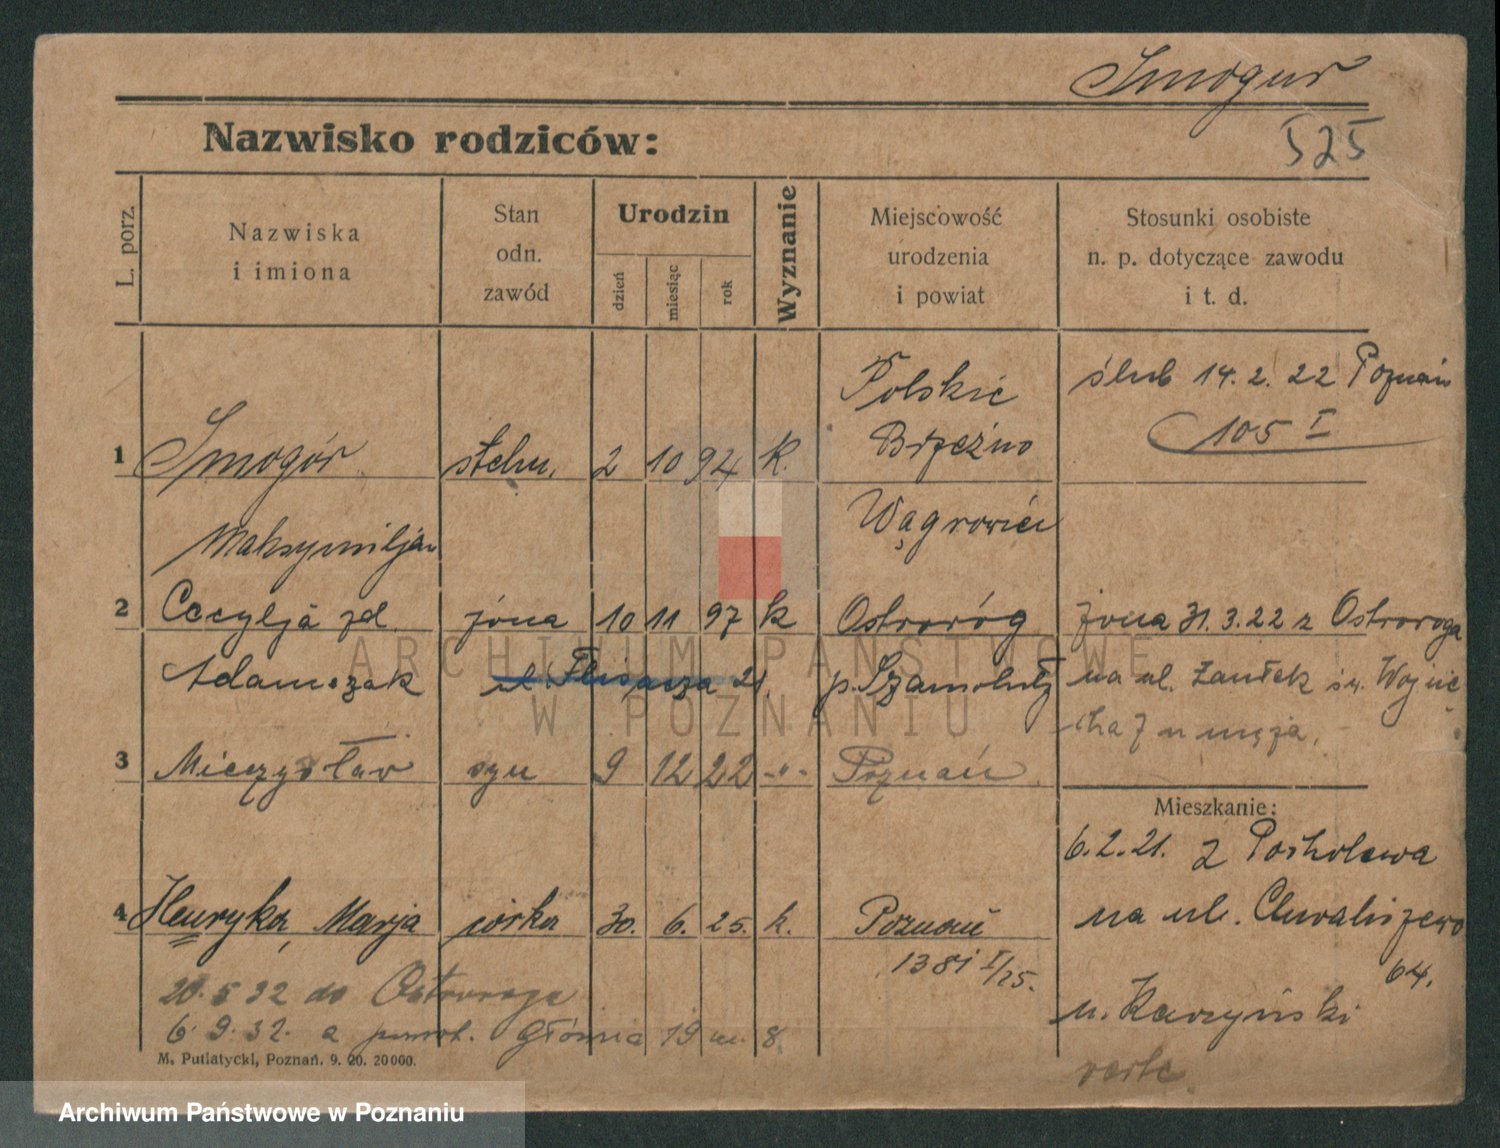 Smogur
Nazwisko rodziców:
525
L. porz.
Nazwiska
i imiona
Stan
odn.
zawód
Urodzin
dzień
miesiąc
rok
Wyznanie
Miejscowość
urodzenia
i powiat
Stosunki osobiste
n. p. dotyczące zawodu
i t. d.
1 Smogór
Maksymiljan
stelm. 2 10 94 k.
Polskie
Brzeźno
Wągrowiec
ślub 14. 2. 22 Poznań
105 I
2 Cecylja zd.
Adamczak
żona 10 11 97 k
Ostroróg
p. Szamotuły
ul. Flisacza 21.
żona 31. 3. 22 z Ostroroga
na ul. Zaułek św. Wojcie
cha 7 u męża.
3 Mieczysław syn 9 12 22 -"- Poznań
Mieszkanie:
6. 2. 21. z
na ul. Chwaliszewo
64.
u. Karzyński
verte
4 Henryka, Marja córka 30. 6. 25. k. Poznań
1381 I/25.
20. 5 32 do Ostroroga
6. 9. 32. z powrot. Główna 19 m. 8.
M. Putiatycki, Poznań. 9. 20. 20000.
ARCHIWUM PAŃSTWOWE
W POZNANIU
Archiwum Państwowe w Poznaniu